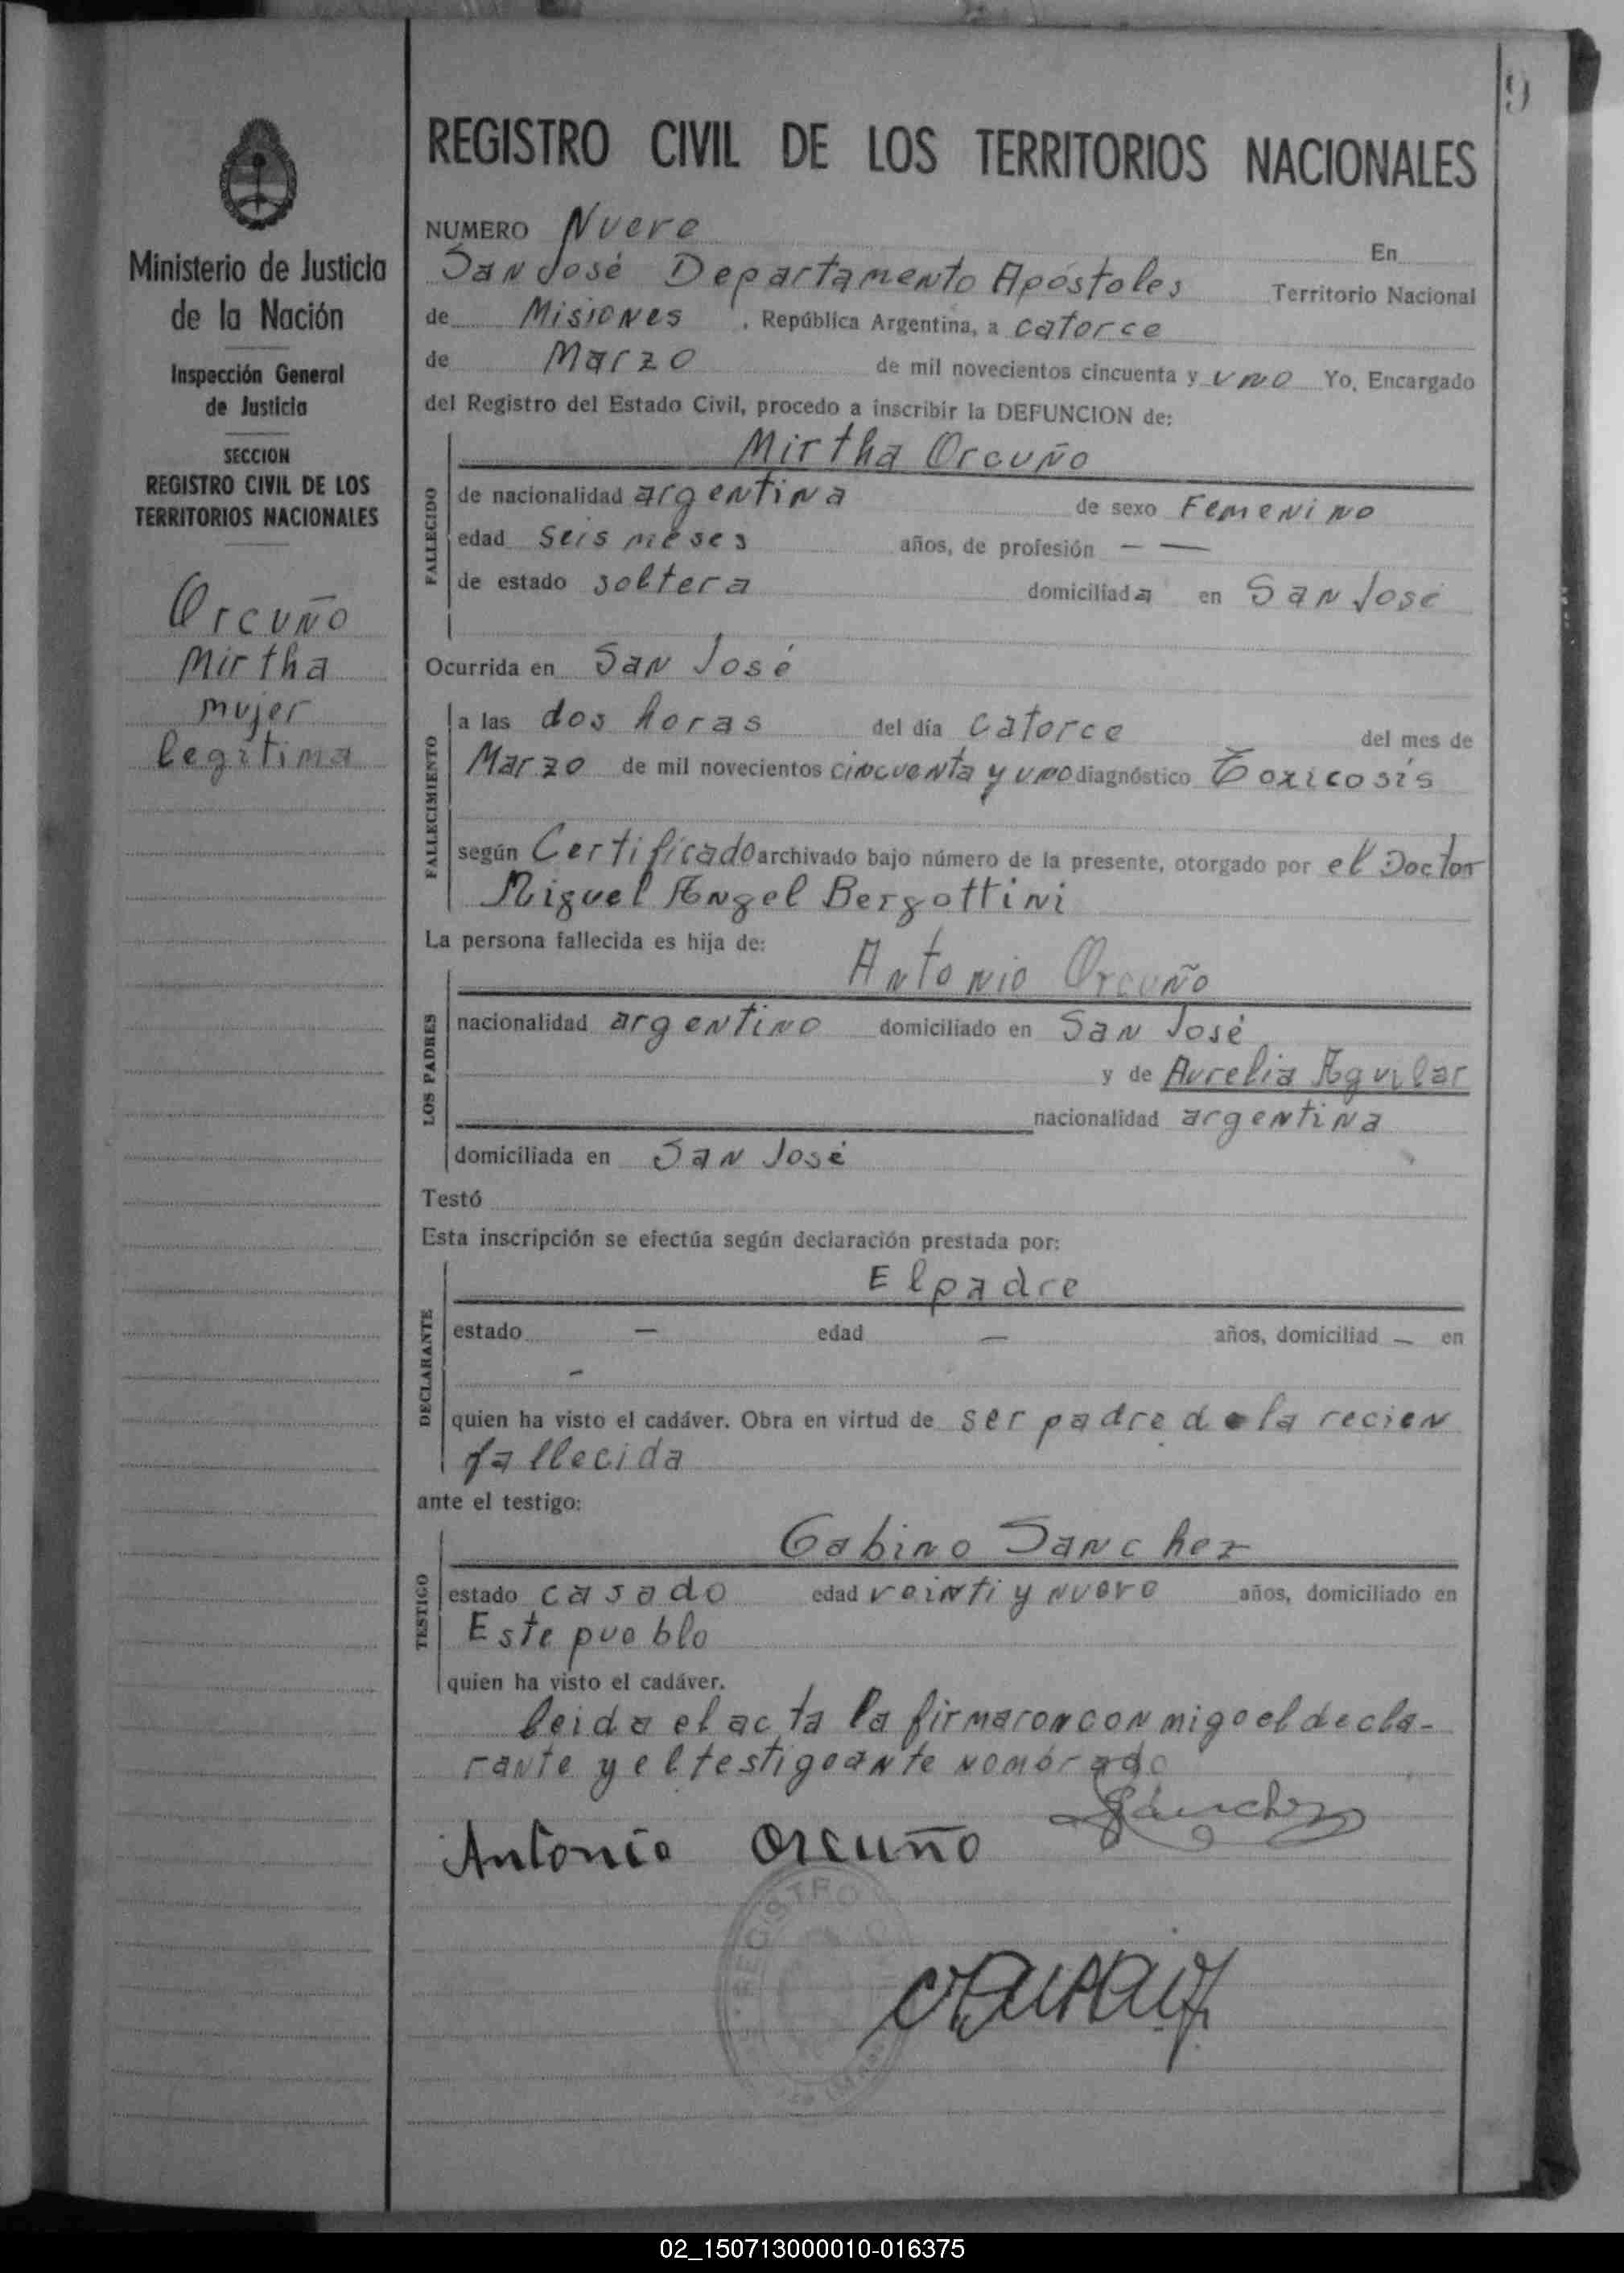 9
REGISTRO CIVIL DE LOS TERRITORIOS NACIONALES
Ministerio de Justicia
de la Nación
Inspección General
de Justicia
SECCION
REGISTRO CIVIL DE LOS
TERRITORIOS NACIONALES
Orcuño
Mirtha
mujer
legítima
NUMERO Nueve
En
San José Departamento Apóstoles Territorio Nacional
de Misiones, República Argentina, a catorce
de Marzo de mil novecientos cincuenta y uno Yo, Encargado
del Registro del Estado Civil, procedo a inscribir la DEFUNCION de:
FALLECIDO
Mirtha Orcuño
de nacionalidad argentina de sexo Femenino
edad Seis meses años, de profesión — —
de estado soltera domiciliada en San José
Ocurrida en San José
FALLECIMIENTO
a las dos horas del día catorce del mes de
Marzo de mil novecientos cincuenta y uno diagnóstico Toxicosis
según Certificado archivado bajo número de la presente, otorgado por el Doctor
Miguel Angel Bergottini
La persona fallecida es hija de:
LOS PADRES
Antonio Orcuño
nacionalidad argentino domiciliado en San José
y de Aurelia Aguilar
nacionalidad argentina
domiciliada en San José
Testó
Esta inscripción se efectúa según declaración prestada por:
DECLARANTE
El padre
estado — edad — años, domiciliad — en
-
quien ha visto el cadáver. Obra en virtud de ser padre de la recien
fallecida
ante el testigo:
TESTIGO
Gabino Sanchez
estado casado edad veinti y nueve años, domiciliado en
Este pueblo
quien ha visto el cadáver.
leida el acta la firmaron con migo el decla-
rante y el testigo ante nombrado
Sánchez
Antonio Orcuño
REGISTRO
02_150713000010-016375